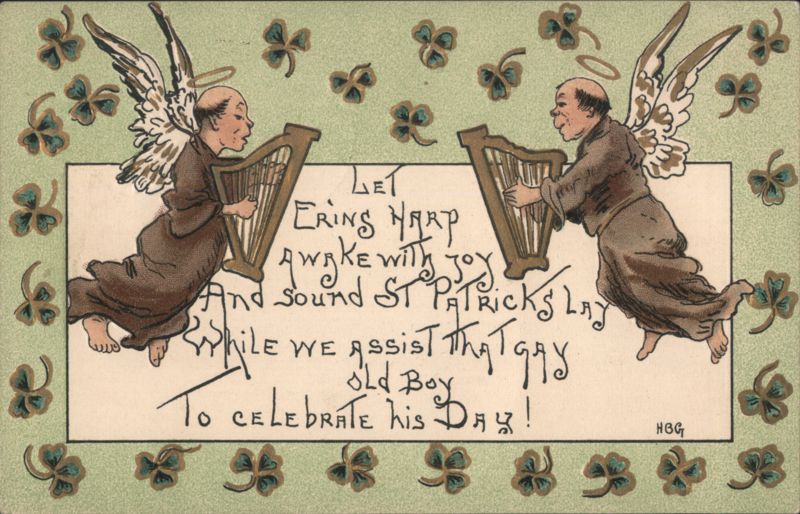 LET
ERINS HARP
AWAKE WITH JOY
And sound ST PATRICKS LAY
While we assist that gay
old Boy
To celebrate his Day!
HBG